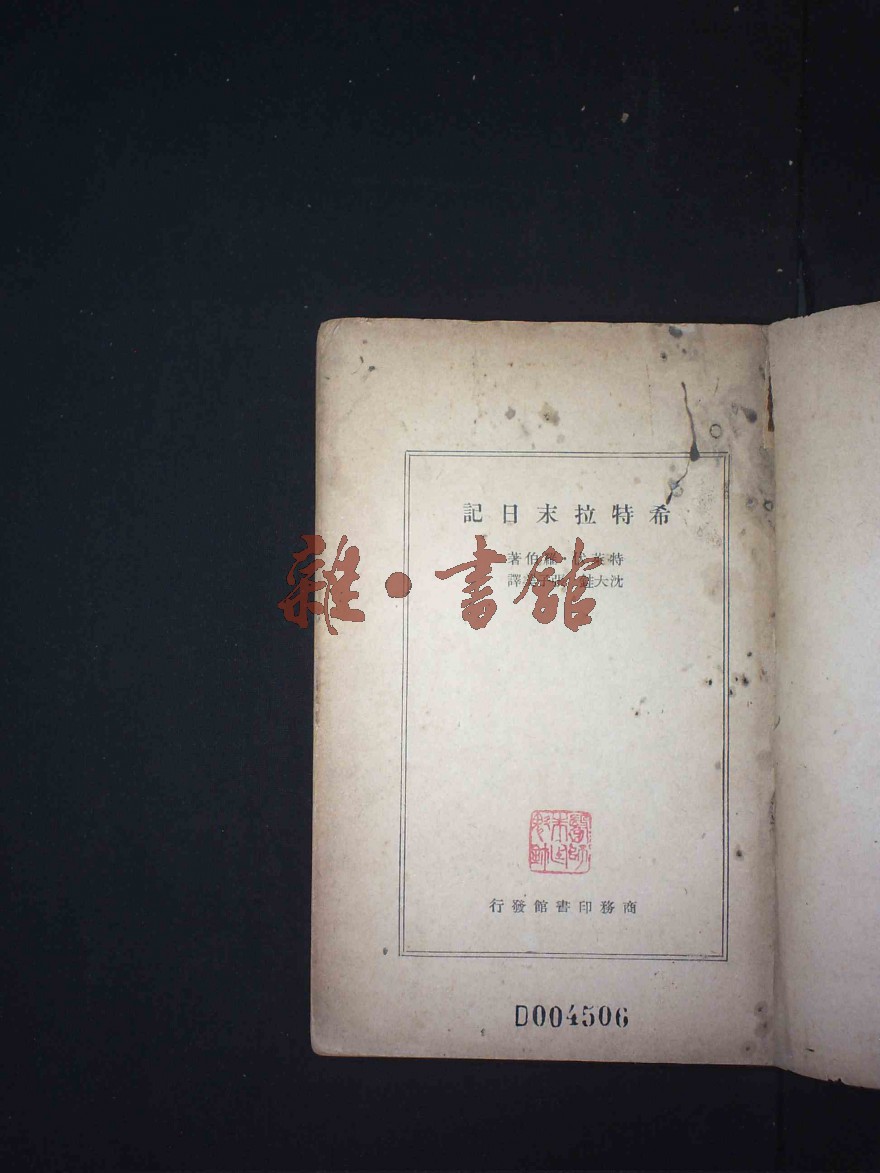 希特拉末日記
特萊·羅伯著
沈大譯
雜·書館
商務印書館發行
D004506